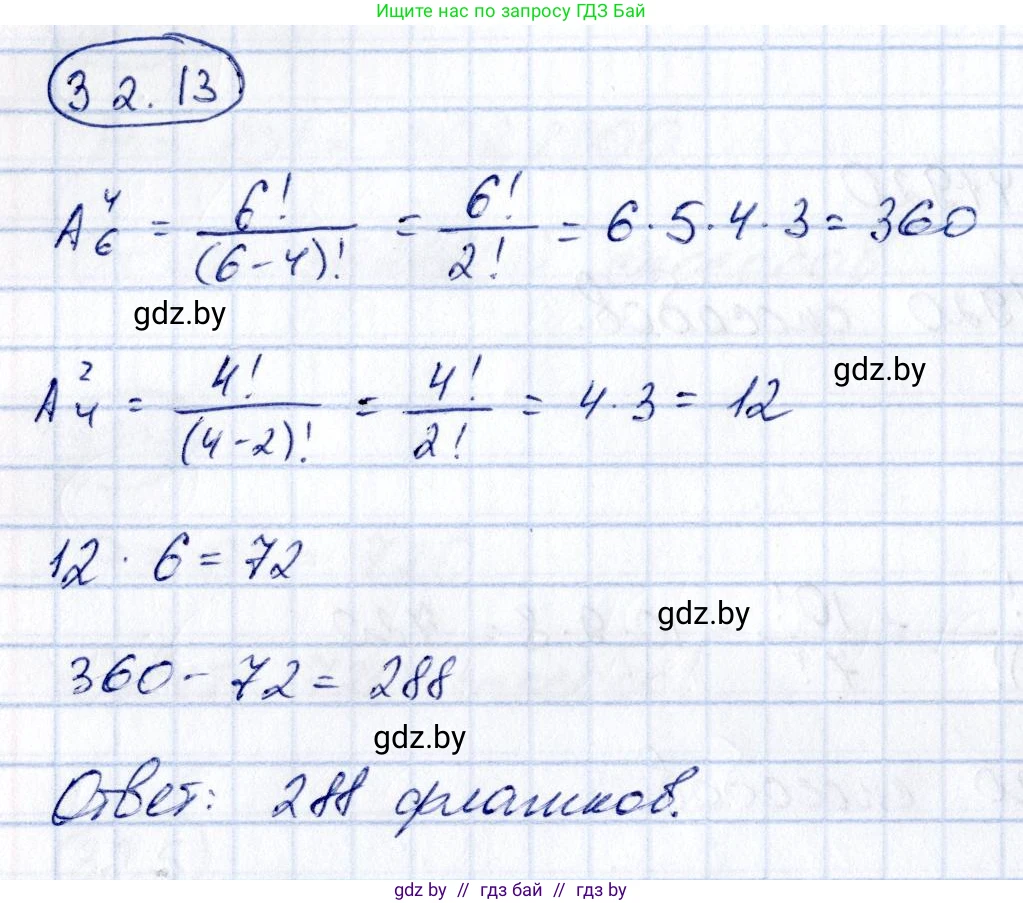 Ищите нас по запросу ГДЗ Бай
32.13
A⁴₆ = 6!/(6-4)! = 6!/2! = 6·5·4·3 = 360
gdz.by
A²₄ = 4!/(4-2)! = 4!/2! = 4·3 = 12
gdz.by
12 · 6 = 72
gdz.by
360 - 72 = 288
gdz.by
Ответ: 288 флашков.
gdz by // гдз бай // gdz by